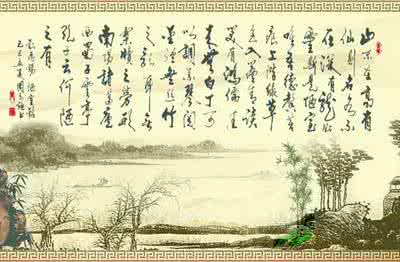 山不在高有
仙則名水不
在深有龍則
靈斯是陋室
唯吾德馨苔
痕上階綠草
色入簾青談
笑有鴻儒往
來無白丁可
以調素琴閱
金經無絲竹
之亂耳無
案牘之勞形
南陽諸葛廬
西蜀子雲亭
孔子云何陋
之有
禹錫陋室銘